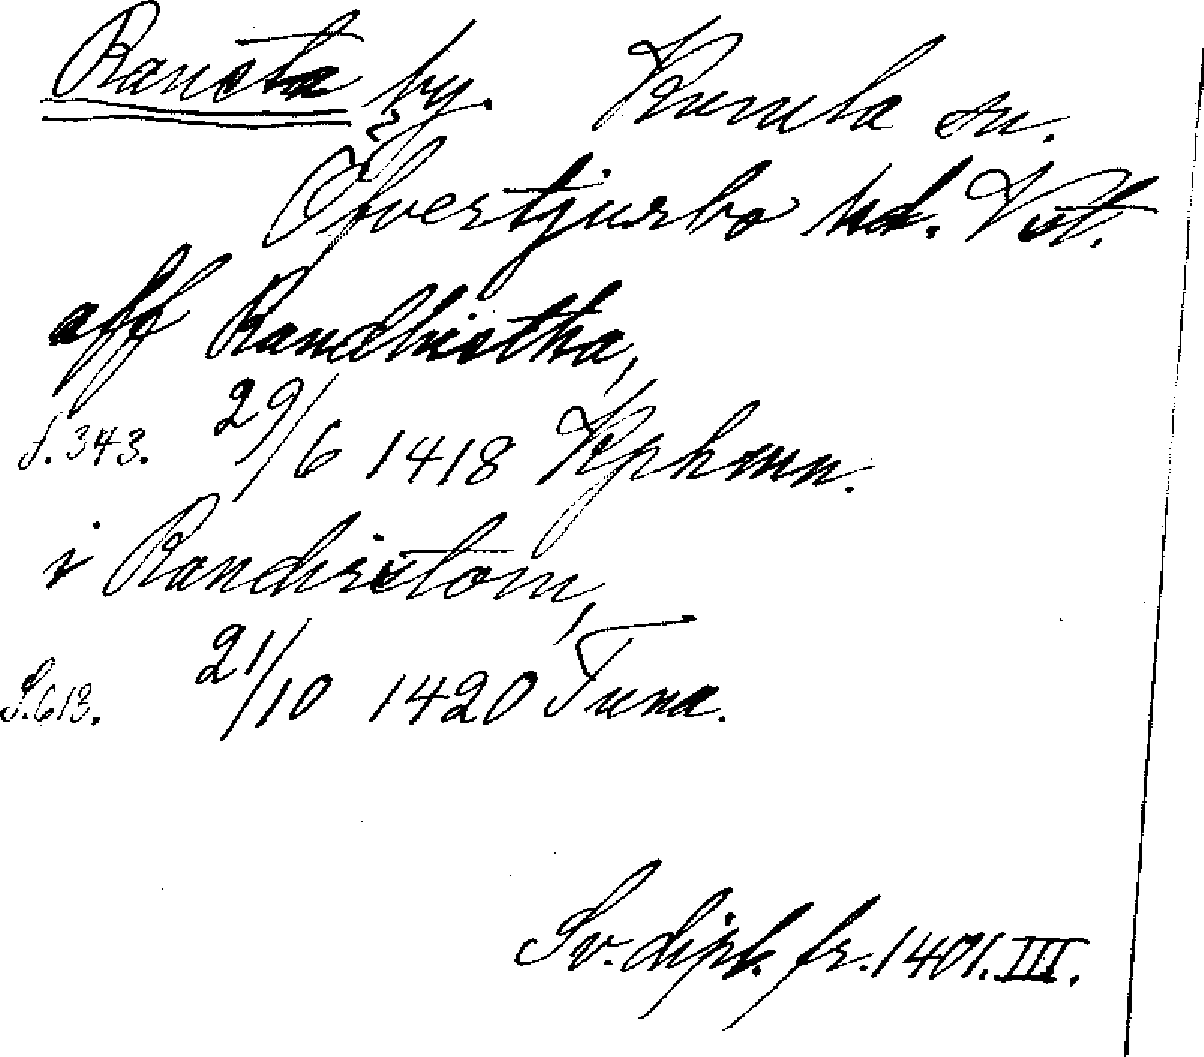 Rancta by. Kumla sn.
Öfvertjurbo hd. Vst.
aff Randhistha,
s. 343. 29/6 1418 Kphmn.
i Randhristom,
S. 613. 21/10 1420 Tuna.
Sv. dipl. fr. 1401. III.